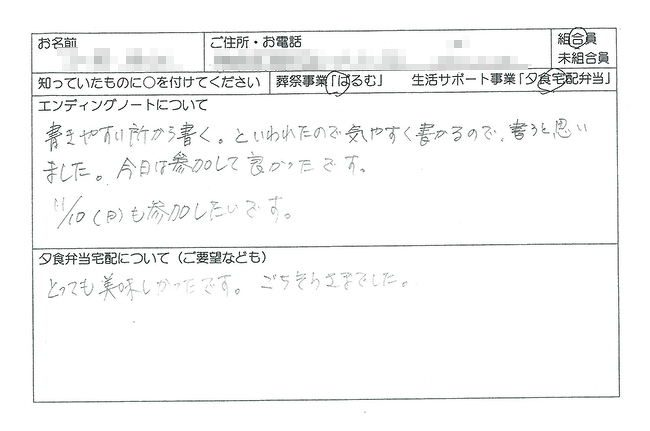 お名前
ご住所・お電話
組合員
未組合員
知っていたものに○を付けてください
葬祭事業「はるむ」
生活サポート事業「夕食宅配弁当」
エンディングノートについて
書きやすい所から書く。といわれたので気やすく書かるので、書うと思い
ました。今日は参加して良かったです。
11/10(日)も参加したいです。
夕食弁当宅配について(ご要望なども)
とっても美味しかったです。ごちそうさまでした。